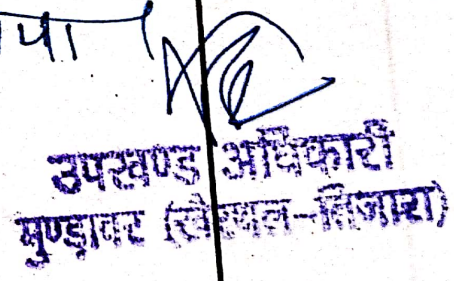 पा
उपखण्ड अधिकारी
मुण्डावर (खैरथल-तिजारा)